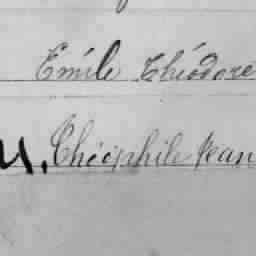 Emile Théodore
Théophile Jean